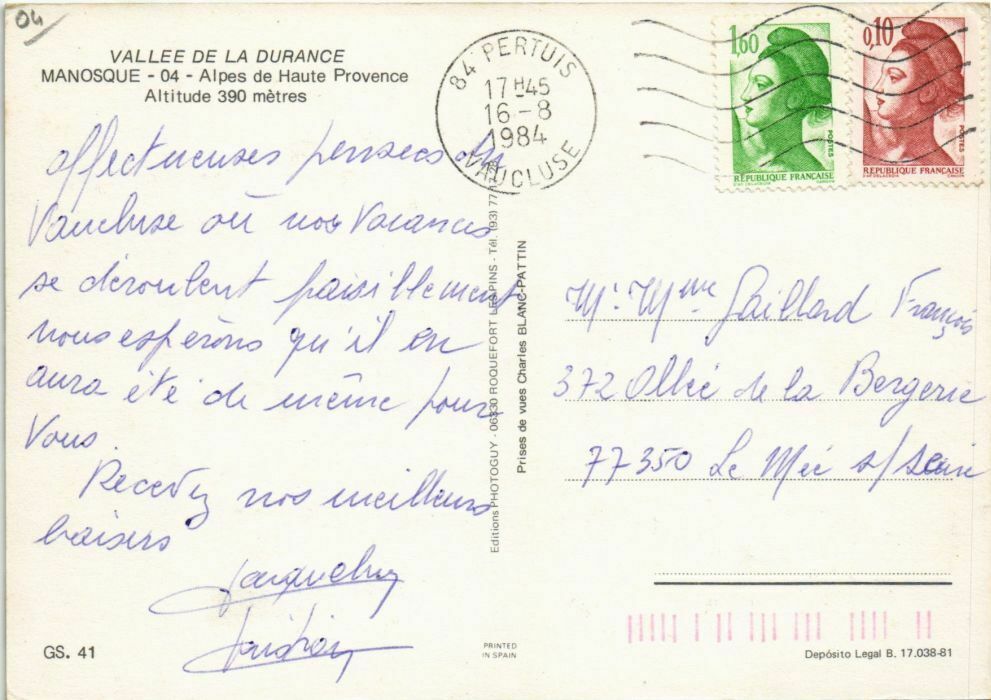 04
VALLEE DE LA DURANCE
MANOSQUE - 04 - Alpes de Haute Provence
Altitude 390 mètres
affectueuses pensées du
Vaucluse où nos Vacances
se déroulent paisiblement
nous espérons qu'il en
aura été de même pour
Vous.
Recevez nos meilleurs
baisers
GS. 41
PRINTED
IN SPAIN
Editions PHOTOGUY - 06330 ROQUEFORT LES PINS - Tél. (93) 77
Prises de vues Charles BLANC-PATTIN
84 PERTUIS
17H45
16-8
1984
VAUCLUSE
1,60
POSTES
RÉPUBLIQUE FRANÇAISE
0,10
POSTES
RÉPUBLIQUE FRANÇAISE
Mr. Mme Gaillard François
372 Allée de la Bergerie
77350 Le Mée s/Seine
Depósito Legal B. 17.038-81